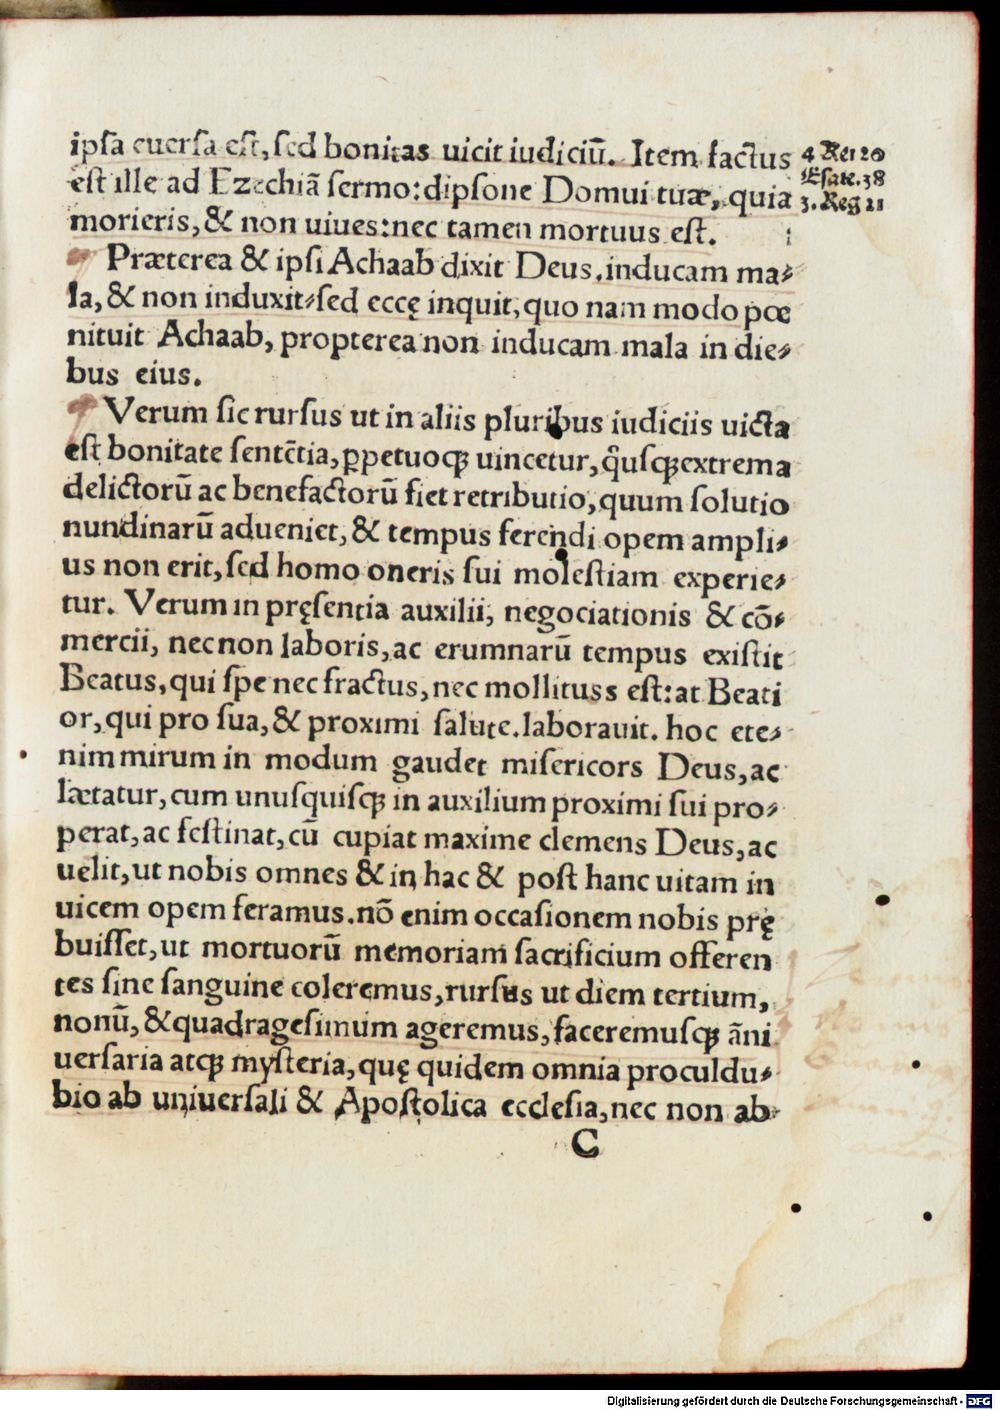 ipſa euerſa eſt, ſed bonitas uicit iudiciū. Item factus
eſt ille ad Ezechiā ſermo: diſpone Domui tuæ, quia
morieris, & non uiues: nec tamen mortuus eſt.
4 Re. 20
Eſaie. 38
3. Reg 21
Præterea & ipſi Achaab dixit Deus. inducam ma⸗
la, & non induxit⸗ſed eccę inquit, quo nam modo pœ
nituit Achaab, propterea non inducam mala in die⸗
bus eius.
Verum ſic rurſus ut in aliis pluribus iudiciis uicta
eſt bonitate ſentētia, ꝑpetuoqꝫ uincetur, qͥuſqꝫ extrema
delictorū ac benefactorū fiet retributio, quum ſolutio
nundinarū adueniet, & tempus ferendi opem ampli⸗
us non erit, ſed homo oneris ſui moleſtiam experie⸗
tur. Verum in pręſentia auxilii, negociationis & cō⸗
mercii, necnon laboris, ac erumnarū tempus exiſtit
Beatus, qui ſpe nec fractus, nec mollituss eſt: at Beati
or, qui pro ſua, & proximi ſalute. laborauit. hoc ete⸗
nim mirum in modum gaudet miſericors Deus, ac
lætatur, cum unuſquiſqꝫ in auxilium proximi ſui pro⸗
perat, ac feſtinat, cū cupiat maxime clemens Deus, ac
uelit, ut nobis omnes & in hac & poſt hanc uitam in
uicem opem feramus. nō enim occaſionem nobis prę
buiſſet, ut mortuorū memoriam ſacrificium offeren
tes ſine ſanguine coleremus, rurſus ut diem tertium,
nonū, & quadrageſimum ageremus, faceremuſqꝫ āni
uerſaria atqꝫ myſteria, quę quidem omnia proculdu⸗
bio ab uniuerſali & Apoſtolica eccleſia, nec non ab
C
Digitalisierung gefördert durch die Deutsche Forschungsgemeinschaft - DFG